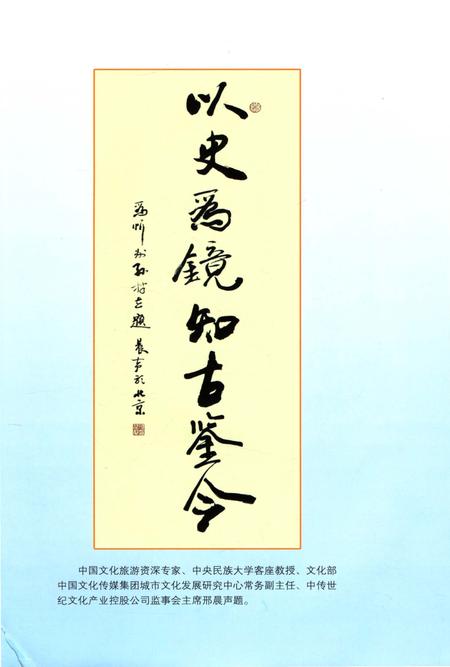 以史爲鏡知古鑒今
爲忻州孙
题 晨声於北京
中国文化旅游资深专家、中央民族大学客座教授、文化部
中国文化传媒集团城市文化发展研究中心常务副主任、中传世
纪文化产业控股公司监事会主席邢晨声题。